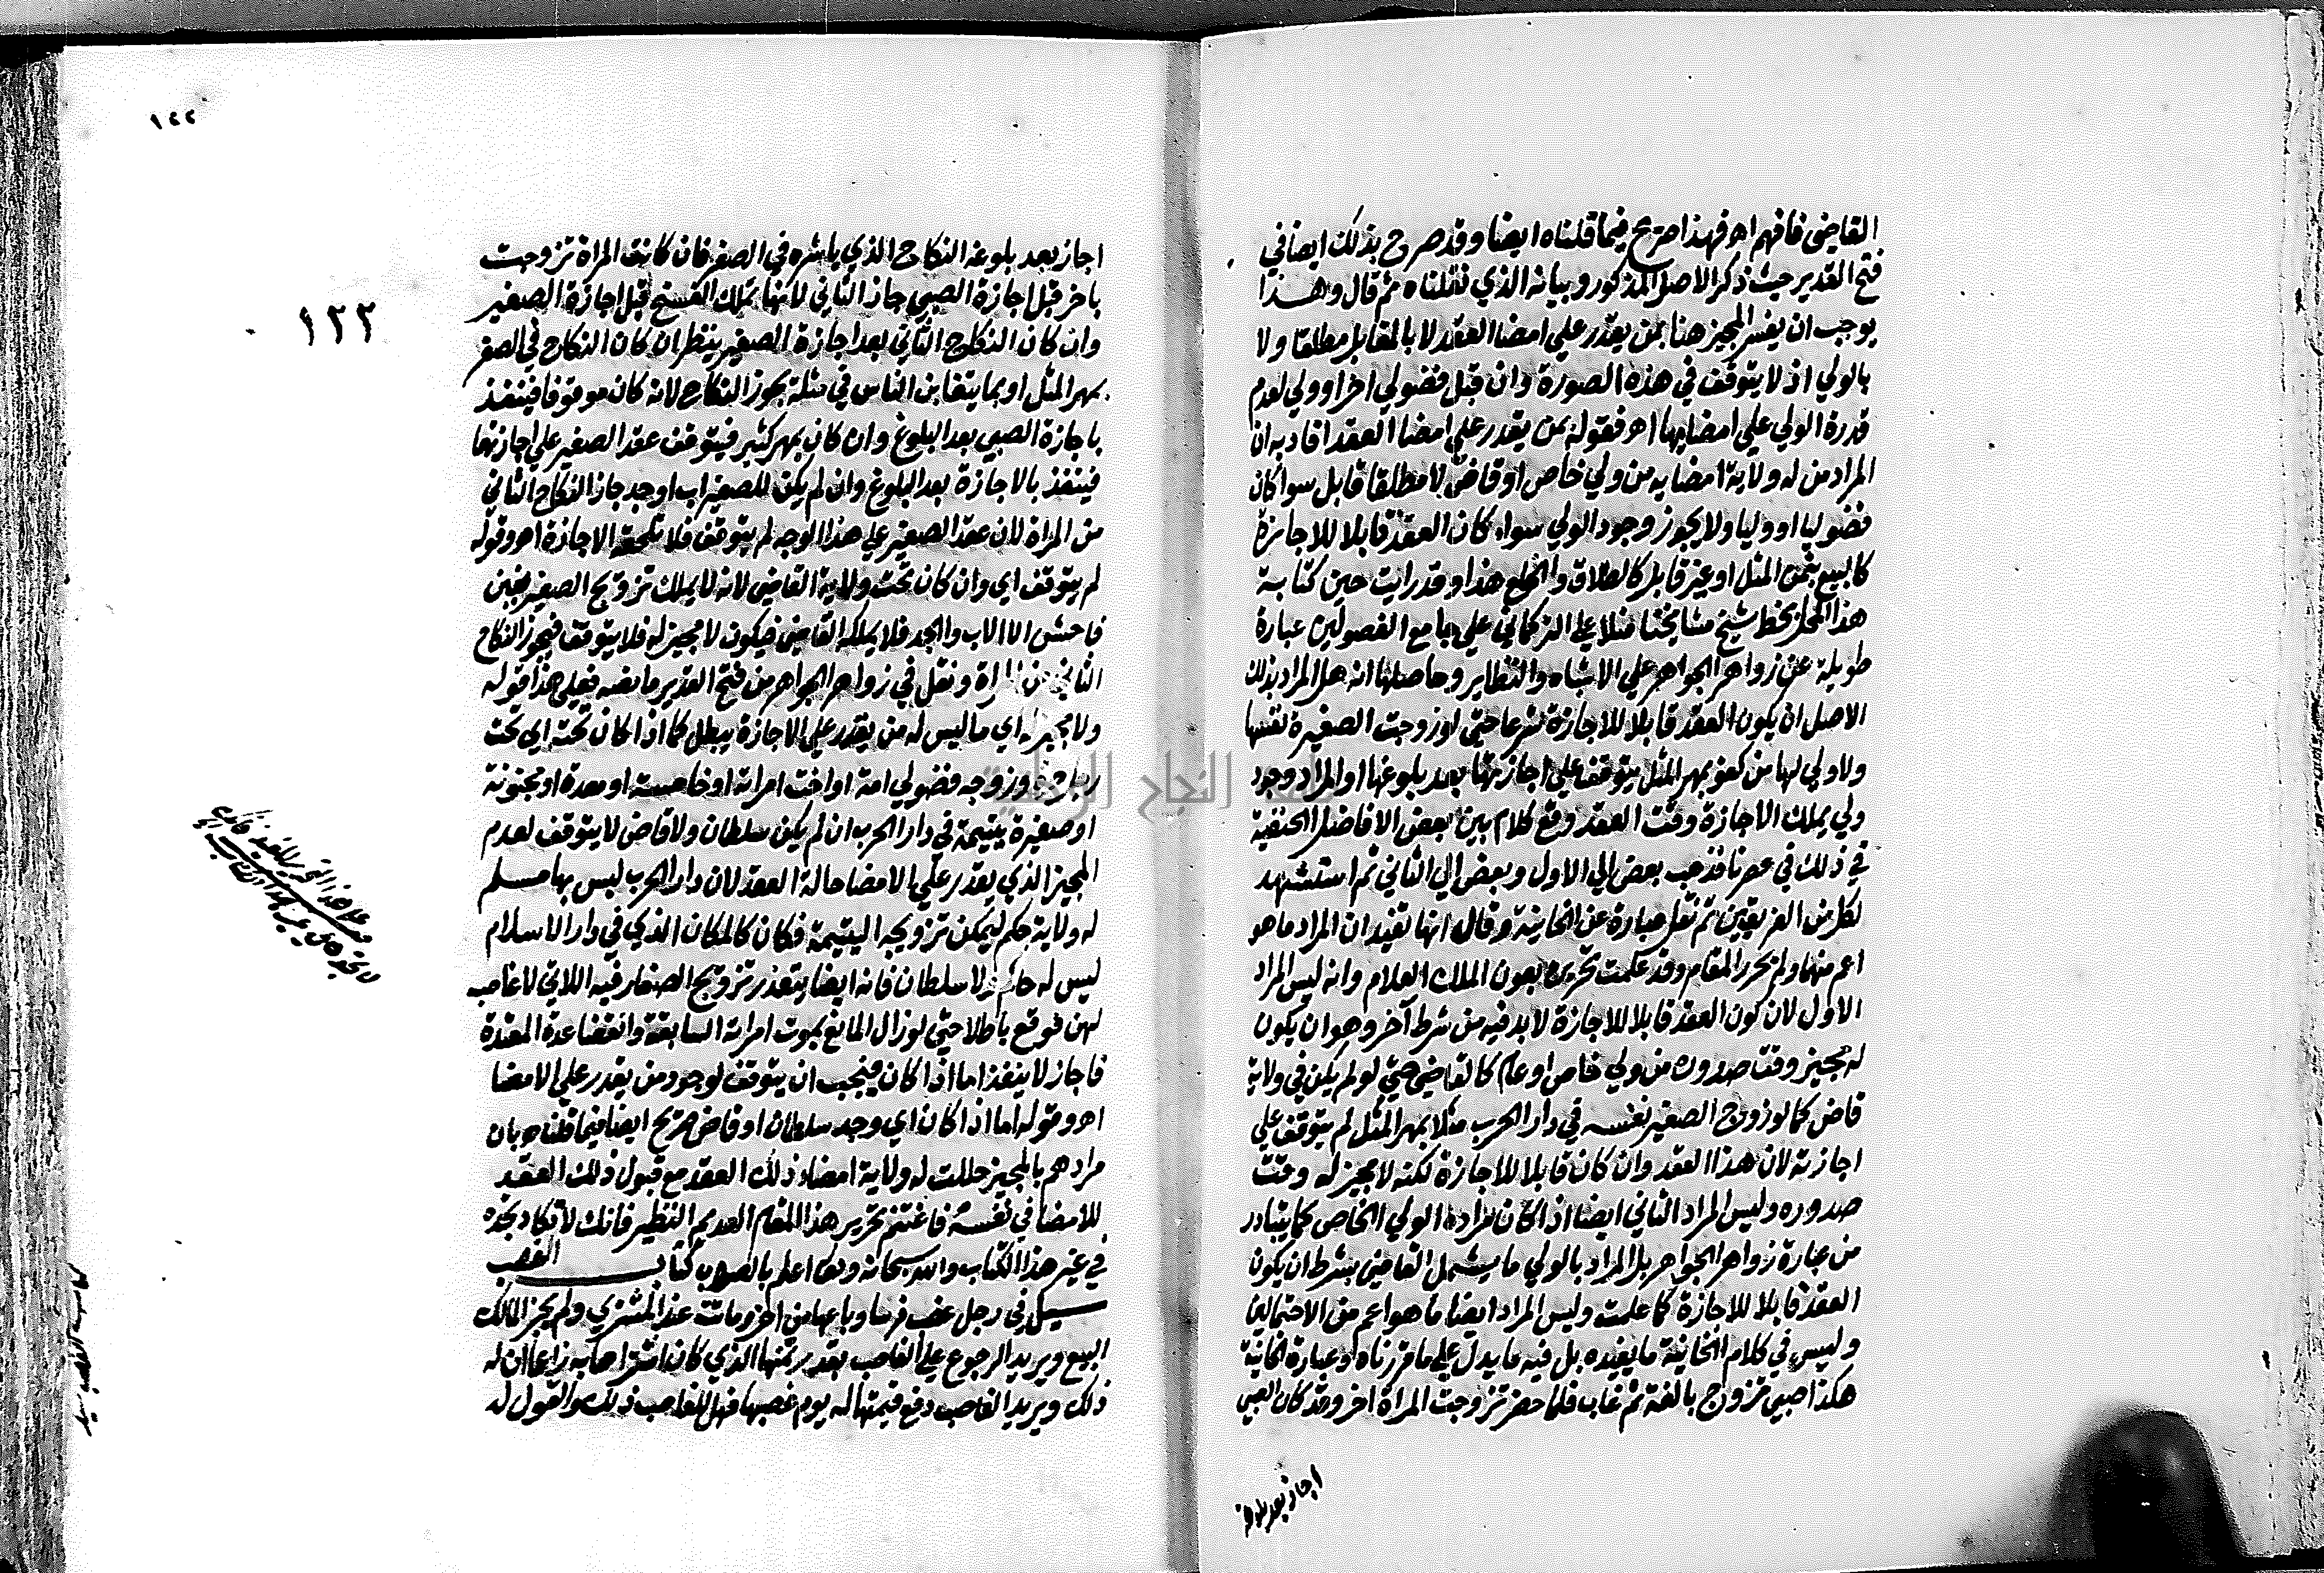 القاضي فافهم اهـ فهذا صريح فيما قلناه ايضا وقد صرح بذلك ايضا في
فتح القدير حيث ذكر الاصل المذكور وبيانه الذي نقلناه ثم قال وهذا
يوجب ان يفسر المجيز هنا بمن يقدر علي امضا العقد لا بالقابل مطلقا ولا
بالولي اذ لا يتوقف في هذه الصورة وان قبل فضولي اخر او ولي لعدم
قدرة الولي علي امضايها اهـ فقوله بمن يقدر علي امضا العقد افاد به ان
المراد من له ولاية امضايه من ولي خاص او قاض لا مطلقا قابل سوا كان
فضوليا او وليا ولا يجوز وجود الولي سواء كان العقد قابلا للاجازة
كالبيع بثمن المثل او غير قابل كالطلاق والخلع هذا وقد رايت حين كتابة
هذا المحل بخط شيخ مشايخنا منلا علي التركماني علي جامع الفصولين عبارة
طويلة عن زواهر الجواهر علي الاشباه والنظاير وحاصلها انه هل المراد بذلك
الاصل ان يكون العقد قابلا للاجازة شرعا حتي لو زوجت الصغيرة نفسها
ولا ولي لها من كفؤ بمهر المثل يتوقف علي اجازتها بعد بلوغها او المراد وجود
ولي يملك الاجازة وقت العقد وقع كلام بين بعض الافاضل الحنفية
في ذلك في عصرنا فذهب بعض الي الاول وبعض الي الثاني ثم استشهد
لكل من الفريقين ثم نقل عبارة عن الخانية وقال انها تفيد ان المراد ما هو
اعم منهما ولم يحرر المقام وقد علمت تحريره بعون الملك العلام وانه ليس المراد
الاول لان كون العقد قابلا للاجازة لا بد فيه من شرط آخر وهو ان يكون
له مجيز وقت صدوره من ولي خاص او عام كالقاضي حتي لو لم يكن في ولاية
قاض كما لو زوج الصغير نفسه في دار الحرب مثلا بمهر المثل لم يتوقف علي
اجازته لان هذا العقد وان كان قابلا للاجازة لكنه لا مجيز له وقت
صدوره وليس المراد الثاني ايضا اذا كان مراده الولي الخاص كما يتبادر
من عبارة زواهر الجواهر بل المراد بالولي ما يشمل القاضي بشرط ان يكون
العقد قابلا للاجازة كما علمت وليس المراد ايضا ما هو اعم من الاحتمالين
وليس في كلام الخانية ما يفيده بل فيه ما يدل علي ما قررناه وعبارة الخانية
هكذا صبي تزوج بالغة ثم غاب فلما حضر تزوجت المراة اخر وقد كان الصبي
اجاز بعد بلوغه
١٢٢
١٢٢
اجاز بعد بلوغه النكاح الذي باشره في الصغر فان كانت المراة تزوجت
باخر قبل اجازة الصبي جاز الثاني لانها تملك الفسخ قبل اجازة الصغير
وان كان النكاح الثاني بعد اجازة الصغير ينظر ان كان النكاح في الصغر
بمهر المثل او بما يتغابن الناس في مثله يجوز النكاح لانه كان موقوفا فينفذ
باجازة الصبي بعد البلوغ وان كان بمهر كثير فيتوقف عقد الصغير علي اجازتها
فينفذ بالاجازة بعد البلوغ وان لم يكن للصغير اب او جد جاز النكاح الثاني
من المراة لان عقد الصغير علي هذا الوجه لم يتوقف فلا تلحقه الاجازة اهـ وقوله
لم يتوقف اي وان كان تحت ولاية القاضي لانه لا يملك تزويج الصغير بغبن
فاحش الا الاب والجد فلا يملكه القاضي فيكون لا مجيز له فلا يتوقف فيجوز النكاح
الثاني من المراة ونقل في زواهر الجواهر من فتح القدير ما نصه فعلي هذا قوله
ولا مجيز له اي ما ليس له من يقدر علي الاجازة يبطل كما اذا كان تحته اي تحت
وزوجه فضولي امة او اخت امراته او خامسة او معتدة او مجنونة
او صغيرة يتيمة في دار الحرب ان لم يكن سلطان ولا قاض لا يتوقف لعدم
المجيز الذي يقدر علي الامضا حالة العقد لان دار الحرب ليس بها مسلم
له ولاية حكم ليمكن تزويجه اليتيمة فكان كالمكان الذي في دار الاسلام
ليس له حاكم ولا سلطان فانه ايضا يتعذر تزويج الصغار فيه اللاتي لا عاصب
لهن فوقع باطلا حتي لو زال المانع بموت امراته السابقة وانقضا عدة المعتدة
فاجاز لا ينفذ اما اذا كان فيجب ان يتوقف لوجود من يقدر علي الامضا
اهـ وقوله اما اذا كان اي وجد سلطان او قاض صريح ايضا فيما قلناه وبان
مرادهم بالمجيز من له ولاية امضاء ذلك العقد مع قبول ذلك العقد
للامضا في نفسه فاغتنم تحرير هذا المقام العديم النظير فانك لا تكاد تجده
في غير هذا الكتاب والله سبحانه وتعا اعلم بالصواب كتاب الغصب
سيل في رجل غصب فرسا وباعها من اخر وماتت عند المشتري ولم يجز المالك
البيع ويريد الرجوع علي الغاصب بقدر ثمنها الذي كان اشتراها به زاعما ان له
ذلك ويريد الغاصب دفع قيمتها له يوم غصبها فهل للغاصب ذلك والقول له